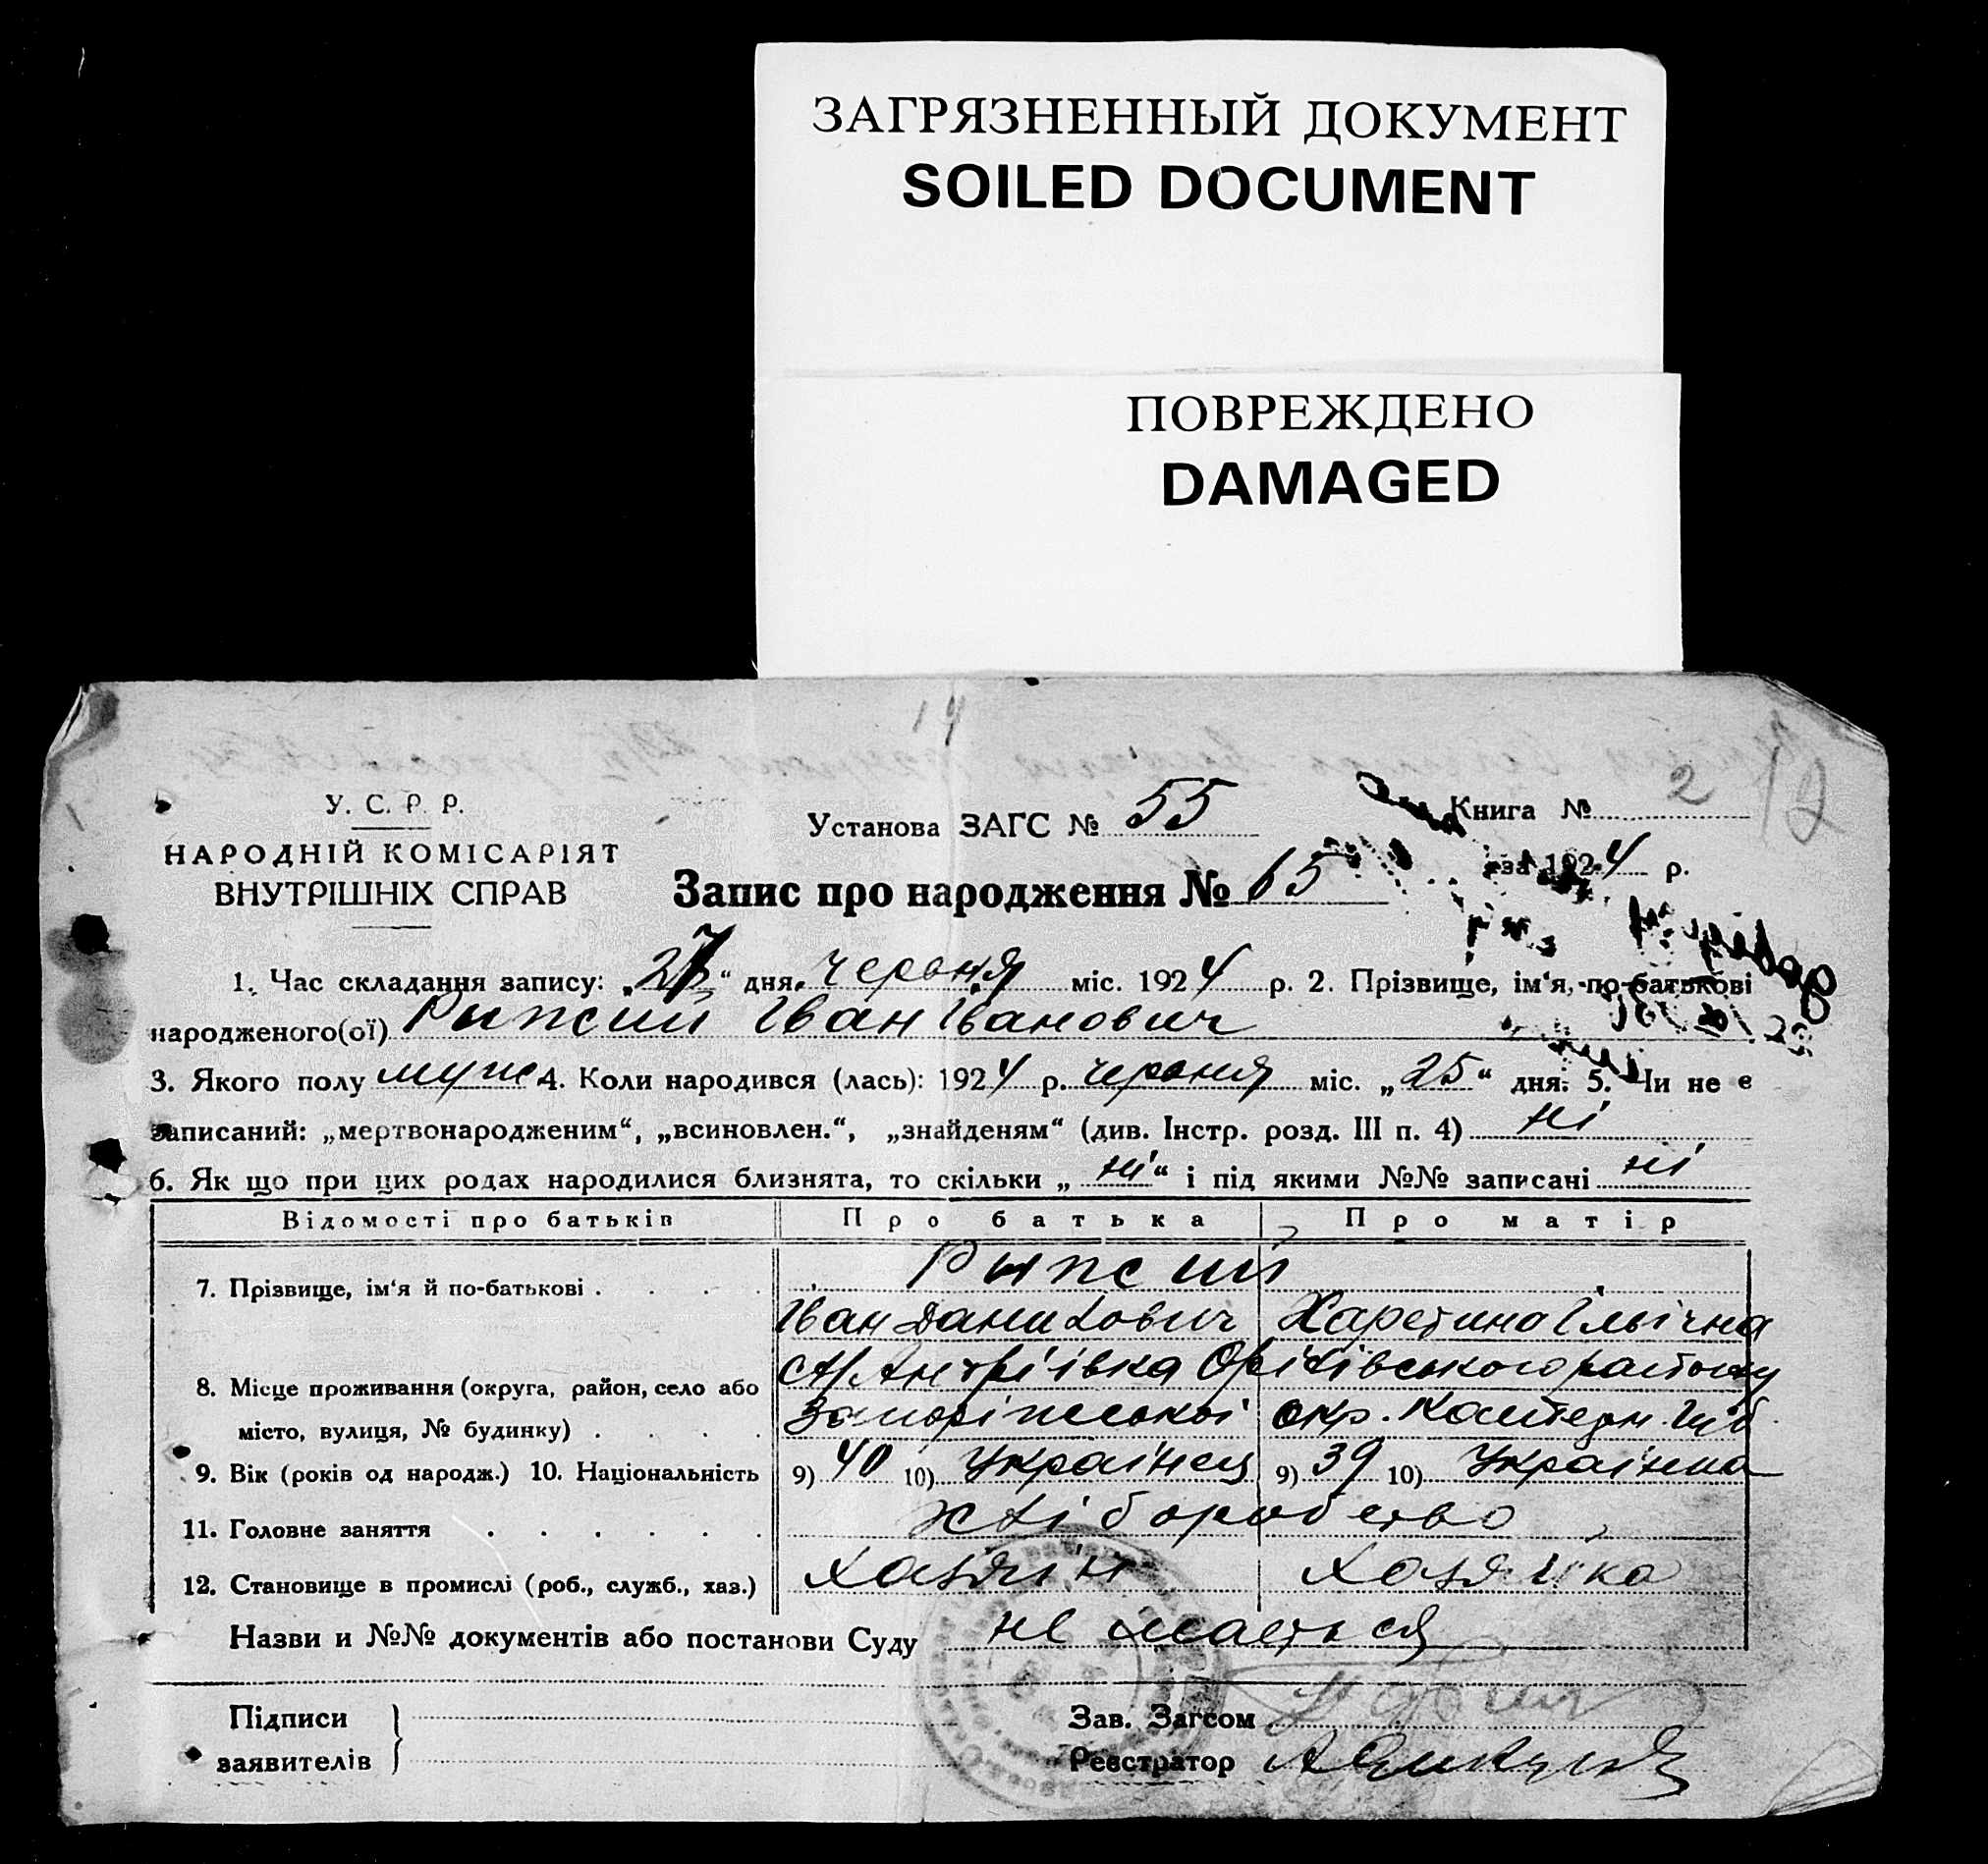 ЗАГРЯЗНЕННЫЙ ДОКУМЕНТ
SOILED DOCUMENT
ПОВРЕЖДЕНО
DAMAGED
14
У. С. Р. Р.
НАРОДНІЙ КОМІСАРІЯТ
ВНУТРІШНІХ СПРАВ
Установа ЗАГС № 55
Книга № 2
за 1924 р.
Запис про народження № 65
1. Час складання запису: „27“ дня червня міс. 1924 р. 2. Прізвище, ім‘я, по-батькові
народженого(ої) Рижий Іван Іванович
3. Якого полу муж 4. Коли народився (лась): 1924 р. червня міс. „25“ дня. 5. Чи не є
записаний: „мертвонародженим“, „всиновлен.“, „знайденям“ (див. Інстр. розд. III п. 4) ні
6. Як що при цих родах народилися близнята, то скільки „ні“ і під якими №№ записані ні
Відомості про батьків Про батька Про матір
7. Прізвище, ім‘я й по-батькові . . . . Рижий
Іван Данилович Харетина Ільічна
8. Місце проживання (округа, район, село або С/Андріівка Оріхівського району
місто, вулиця, № будинку) . . . . Запоріжської окр. Катерин. Губ.
9. Вік (років од народж.) 10. Національність 9) 40 10) Українец 9) 39 10) Українка
11. Головне заняття . . . . . . хліборобство
12. Становище в промислі (роб., служб., хаз.) Хазяін Хазяйка
Назви и №№ документів або постанови Суду не мається
Підписи
заявителів
Зав. Загсом
Реєстратор